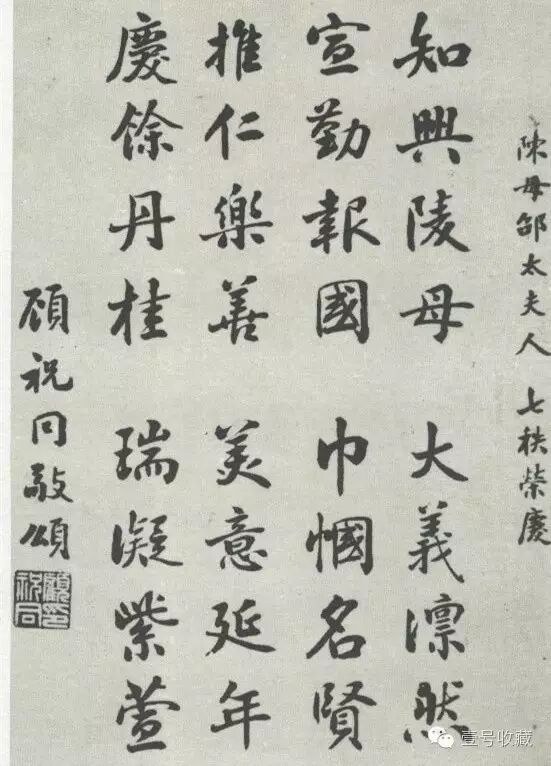 陳母邵太夫人 七秩榮慶
知興陵母 大義凜然
宣勤報國 巾幗名賢
推仁樂善 美意延年
慶餘丹桂 瑞凝紫萱
顧祝同敬頌
顧祝同印
壹号收藏